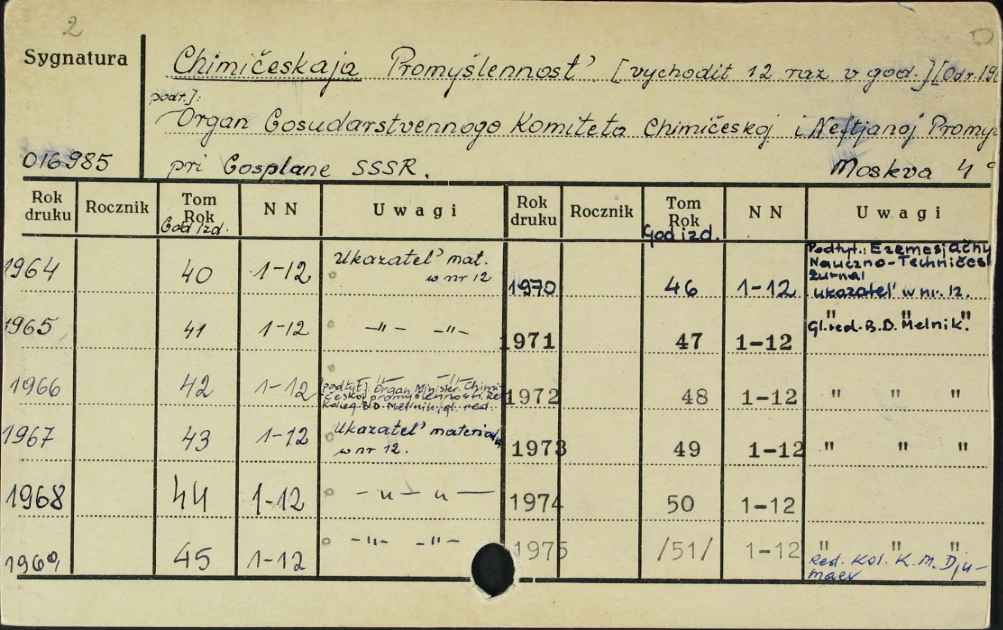 2
Sygnatura
Chimičeskaja Promyšlennost'. [vychodit 12 raz v god.] [Odr. 19
podr.]:
Organ Gosudarstvennogo Komiteta Chimičeskoj i Neftjanoj Promy
016985
pri Gosplane SSSR.
Moskva 4°
Rok druku Rocznik Tom Rok God izd. N N Uwagi Rok druku Rocznik Tom Rok God izd. N N Uwagi
1964 40 1-12 Ukazatel' mat. w nr 12
1970 46 1-12 Podtyt.: Ezemesjačny Nauczno-Techničes žurnal ukazatel' w nr. 12.
1965 41 1-12 -"- -"-
1971 47 1-12 " " " Gl. red. B.D. Melnik.
1966 42 1-12 [podtyt.] Organ Minister. Chimičeskoj promyšlennosti. B.D. Melnik gl. red.
1972 48 1-12 " " "
1967 43 1-12 Ukazatel' material w nr 12.
1973 49 1-12 " " "
1968 44 1-12 - " - " -
1974 50 1-12
1969 45 1-12 -"- -"-
1975 /51/ 1-12 " " " Red. Kol. K. M. Djumaev